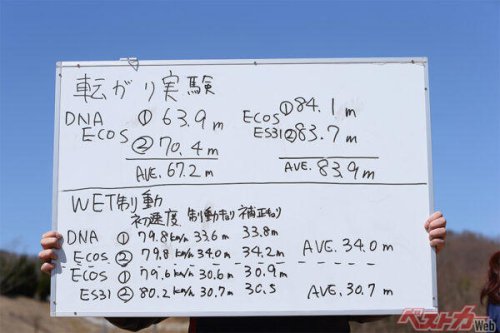 転がり実験
DNA ECOS ① 63.9 m
② 70.4 m
AVE. 67.2 m
ECOS ES31 ① 84.1 m
② 83.7 m
AVE. 83.9 m
WET制動
初速度 制動キョリ 補正キョリ
DNA ① 79.8km/h 33.6 m 33.8m
ECOS ② 79.8km/h 34.0 m 34.2 m AVE. 34.0 m
ECOS ① 79.6km/h 30.6 m 30.9m
ES31 ② 80.2 km/h 30.7 m 30.5 AVE. 30.7 m
ベストカーWeb